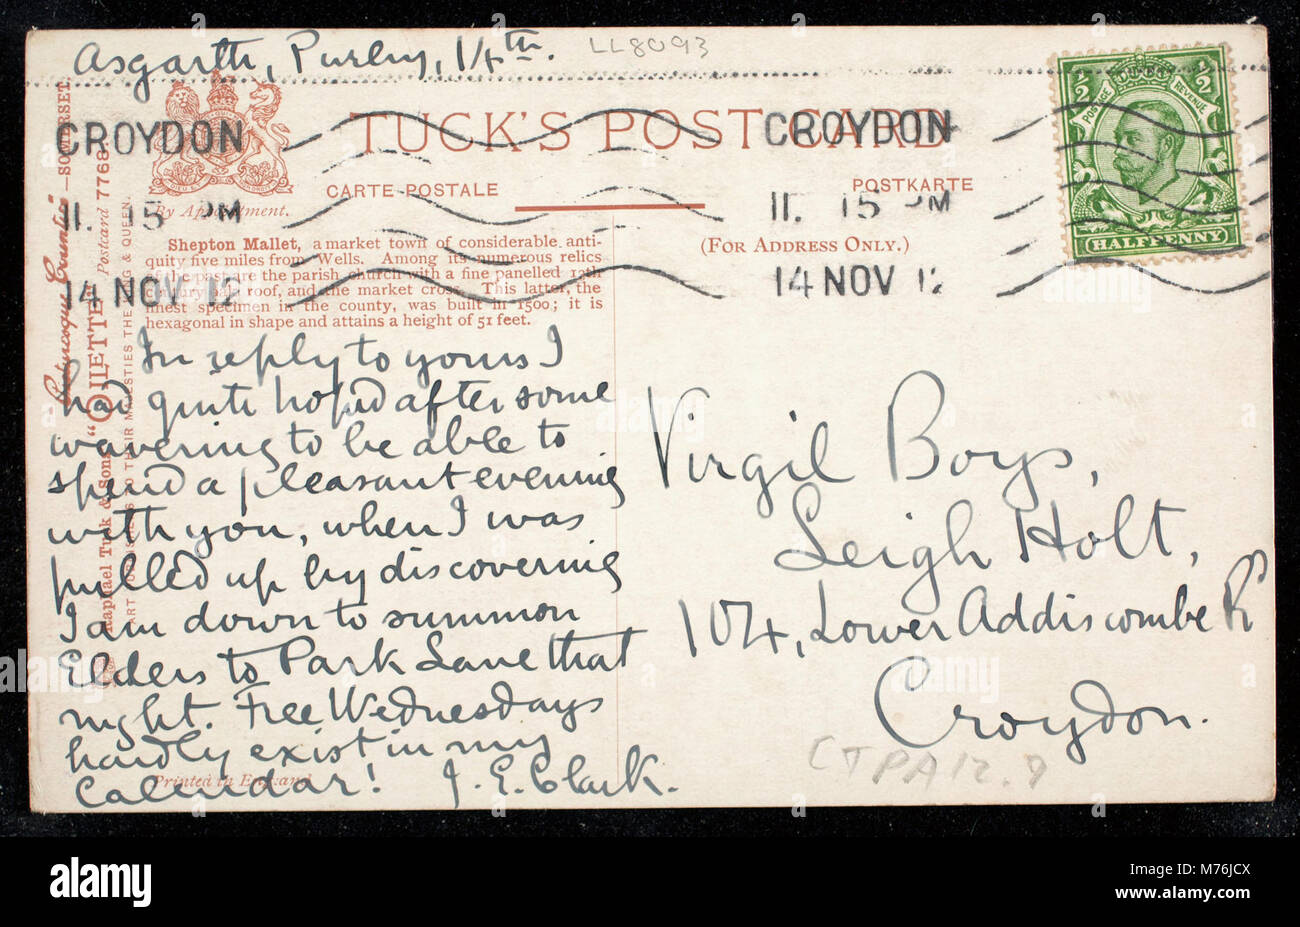 Asgarth, Purley, 14th.
LL8093
TUCK'S POST CARD
CARTE POSTALE
POSTKARTE
(FOR ADDRESS ONLY.)
By Appointment.
CROYDON
11. 15 PM
14 NOV 12
CROYDON
11. 15 PM
14 NOV 12
POSTAGE REVENUE
1/2
1/2
HALFPENNY
Shepton Mallet, a market town of considerable anti-
quity five miles from Wells. Among its numerous relics
of the past are the parish church with a fine panelled 13th
century roof, and the market cross. This latter, the
finest specimen in the county, was built in 1500; it is
hexagonal in shape and attains a height of 51 feet.
Picturesque Counties—SOMERSET
"OILETTE" Postcard 7768.
Raphael Tuck & Sons
ART PUBLISHERS TO THEIR MAJESTIES THE KING & QUEEN.
In reply to yours I
had quite hoped after some
wavering to be able to
spend a pleasant evening
with you, when I was
pulled up by discovering
I am down to summon
Elders to Park Lane that
night. Free Wednesdays
hardly exist in my
Calendar! J. E. Clark.
Printed in England
Virgil Boys,
Leigh Holt,
104, Lower Addiscombe Rd
Croydon.
CTPA12.9
alamy
Image ID: M76JCX
www.alamy.com